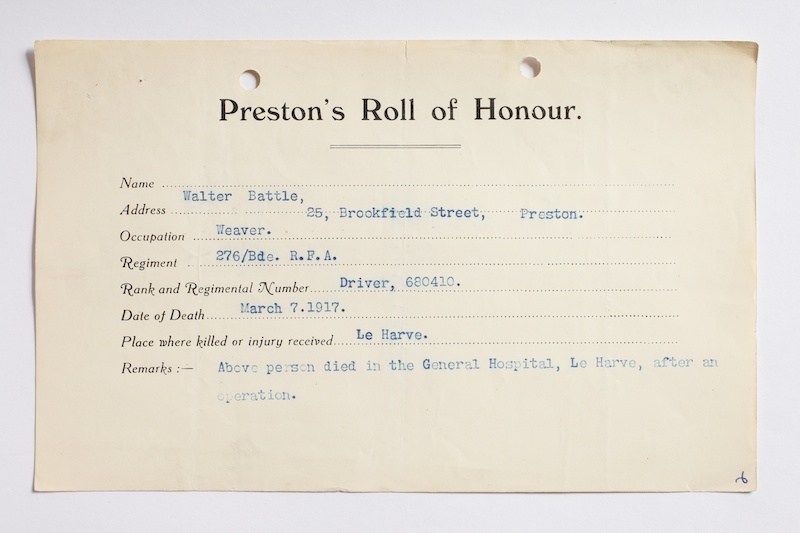 Preston's Roll of Honour.
Name Walter Battle,
Address 25, Brookfield Street, Preston.
Occupation Weaver.
Regiment 276/Bde. R.F.A.
Rank and Regimental Number Driver, 680410.
Date of Death March 7.1917.
Place where killed or injury received Le Harve.
Remarks :— Above person died in the General Hospital, Le Harve, after an
operation.